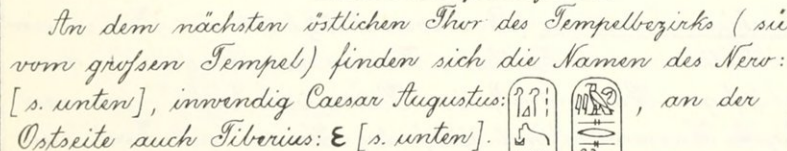 An dem nächsten östlichen Thor des Tempelbezirks (
vom großen Tempel) finden sich die Namen des Nero:
[s. unten], inwendig Caesar Augustus: , an der
Ostseite auch Tiberius: ε [s. unten].